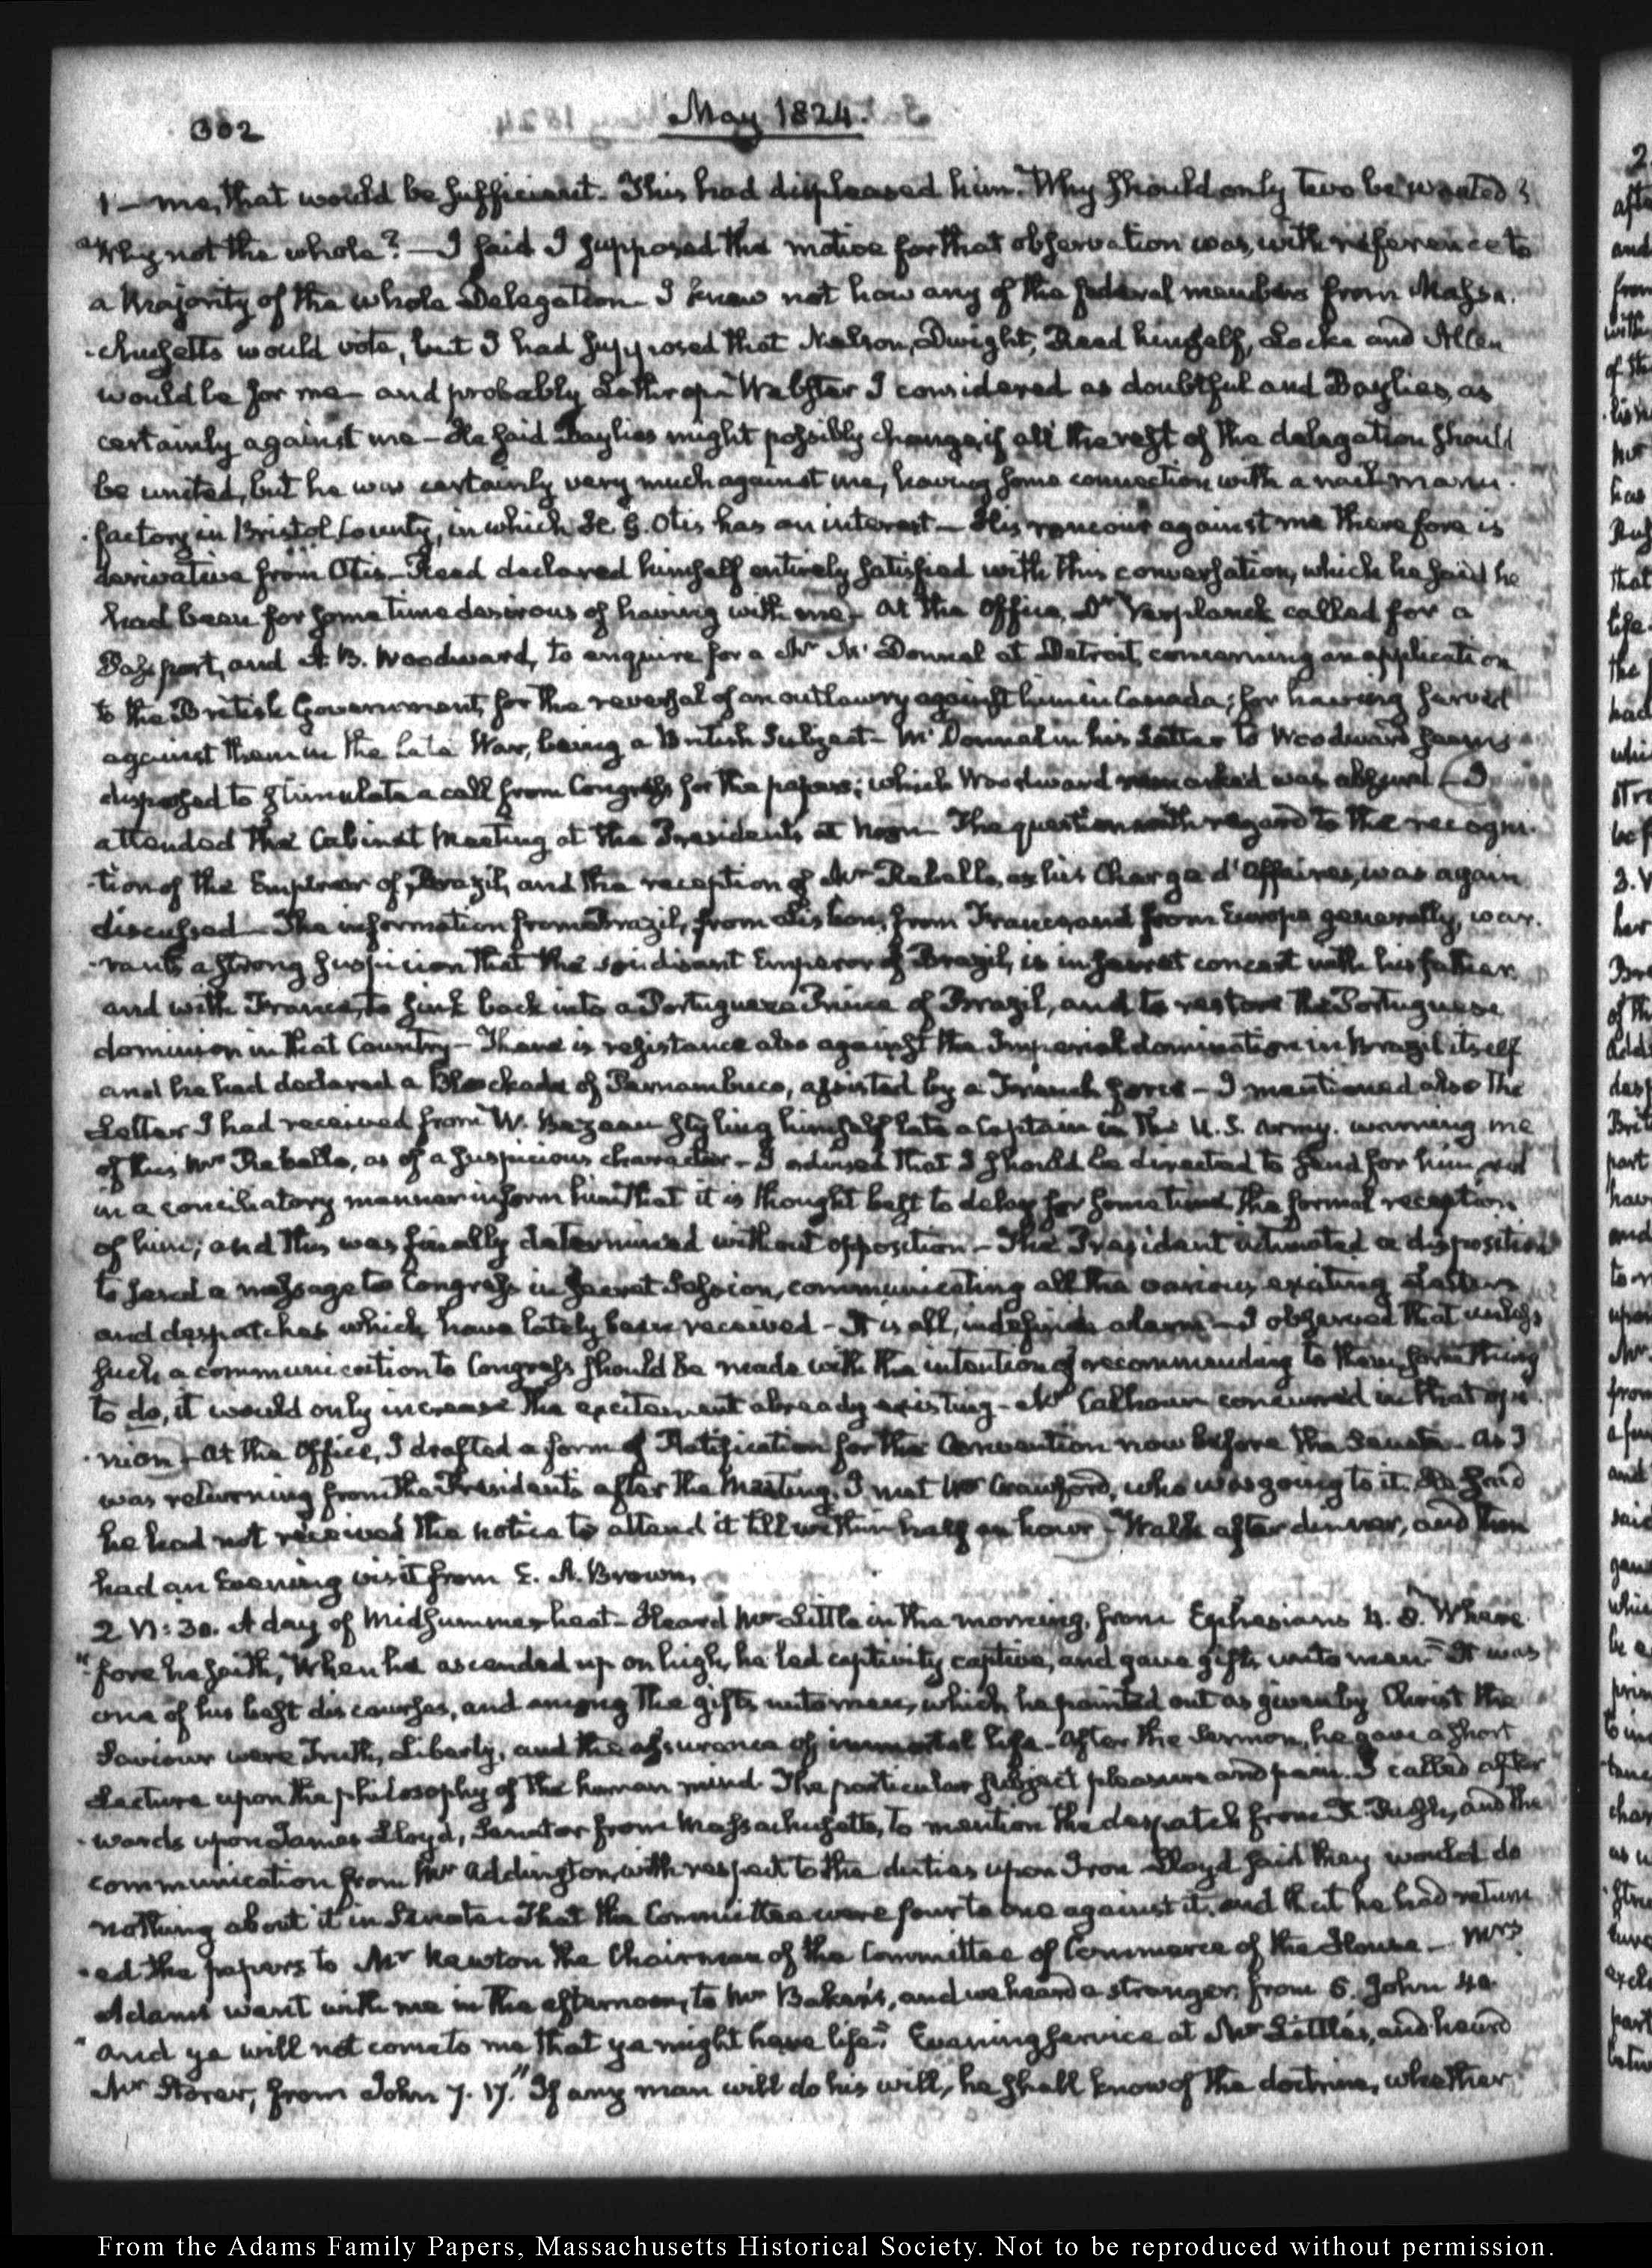 302
May 1824.
1 — me, that would be sufficient. This had displeased him. Why should only two be wanted?
Why not the whole? — I said I supposed the motive for that observation was, with reference to
a Majority of the whole Delegation. I knew not how any of the federal members from Massa-
-chusetts would vote, but I had supposed that Nelson, Dwight, Reed himself, Locke and Allen
would be for me — and probably Lathrop. Webster I considered as doubtful and Baylies, as
certainly against me — He said Baylies might possibly change, if all the rest of the delegation should
be united, but he was certainly very much against me, having some connection with a nail manu-
-factory in Bristol County, in which H. G. Otis has an interest — His rancour against me therefore is
derivative from Otis — Reed declared himself entirely satisfied with this conversation, which he said he
had been for some time desirous of having with me — At the Office, Dr. Verplanck called for a
Passport, and A. B. Woodward, to enquire for a Mr. McDonnel at Detroit, concerning an application
to the British Government, for the reversal of an outlawry against him in Canada; for having served
against them in the late War, being a British Subject — McDonnal in his Letter to Woodward seems
disposed to stimulate a call from Congress for the papers; which Woodward remarked was absurd — I
attended the Cabinet Meeting at the Presidents at Noon — The question with regard to the recogni-
-tion of the Emperor of Brazil, and the reception of Mr. Rebello, as his Charge d'Affaires, was again
discussed — The information from Brazil, from Lisbon, from France and from Europe generally, war-
-rants a strong suspicion that the soi disant Emperor of Brazil, is in secret concert with his father
and with France, to sink back into a Portuguese Prince of Brazil, and to restore the Portuguese
dominion in that Country — There is resistance also against the Imperial domination in Brazil itself
and he had declared a Blockade of Pernambuco, assisted by a French force — I mentioned also the
Letter I had received from W. Bazeau styling himself late a Captain in the U.S. Army. warning me
of this Mr. Rebello, as of a suspicious character — I advised that I should be directed to send for him, and
in a conciliatory manner inform him that it is thought best to delay for some time the formal reception
of him; and this was finally determined without opposition — The President intimated a disposition
to send a message to Congress in Secret Session, communicating all the various exciting Letters
and despatches which have lately been received — It is all, indefinite alarm — I observed that unless
such a communication to Congress should be made with the intention of recommending to them something
to do, it would only increase the excitement already existing — Mr. Calhoun concurred in that opi-
-nion — At the Office, I drafted a form of Ratification for the Convention now before the Senate. As I
was returning from the Presidents after the Meeting, I met Mr. Crawford, who was going to it. He said
he had not received the notice to attend it till within half an hour — Walk after dinner, and then
had an Evening visit from E. A. Brown.
2 VI: 30. A day of Midsummer heat — Heard Mr. Little in the morning, from Ephesians 4. 8. "Where-
"-fore he saith, When he ascended up on high, he led captivity captive, and gave gifts unto men." It was
one of his best discourses, and among the gifts unto men, which he pointed out as given by Christ the
Saviour were Truth, Liberty, and the assurance of immortal life — After the Sermon, he gave a short
Lecture upon the philosophy of the human mind. The particular subject pleasure and pain. I called after-
-wards upon James Lloyd, Senator from Massachusetts, to mention the despatch from R. Rush, and the
communication from Mr. Addington, with respect to the duties upon Iron. Lloyd said they would do
nothing about it in Senate. That the Committee were four to one against it, and that he had return-
-ed the papers to Mr. Newton the Chairman of the Committee of Commerce of the House — Mrs.
Adams went with me in the afternoon, to Mr. Baker's, and we heard a stranger, from 5. John 40.
"And ye will not come to me that ye might have life." Evening service at Mr. Little's, and heard
Mr. Storer, from John 7. 17. "If any man will do his will, he shall know of the doctrine, whether
From the Adams Family Papers, Massachusetts Historical Society. Not to be reproduced without permission.